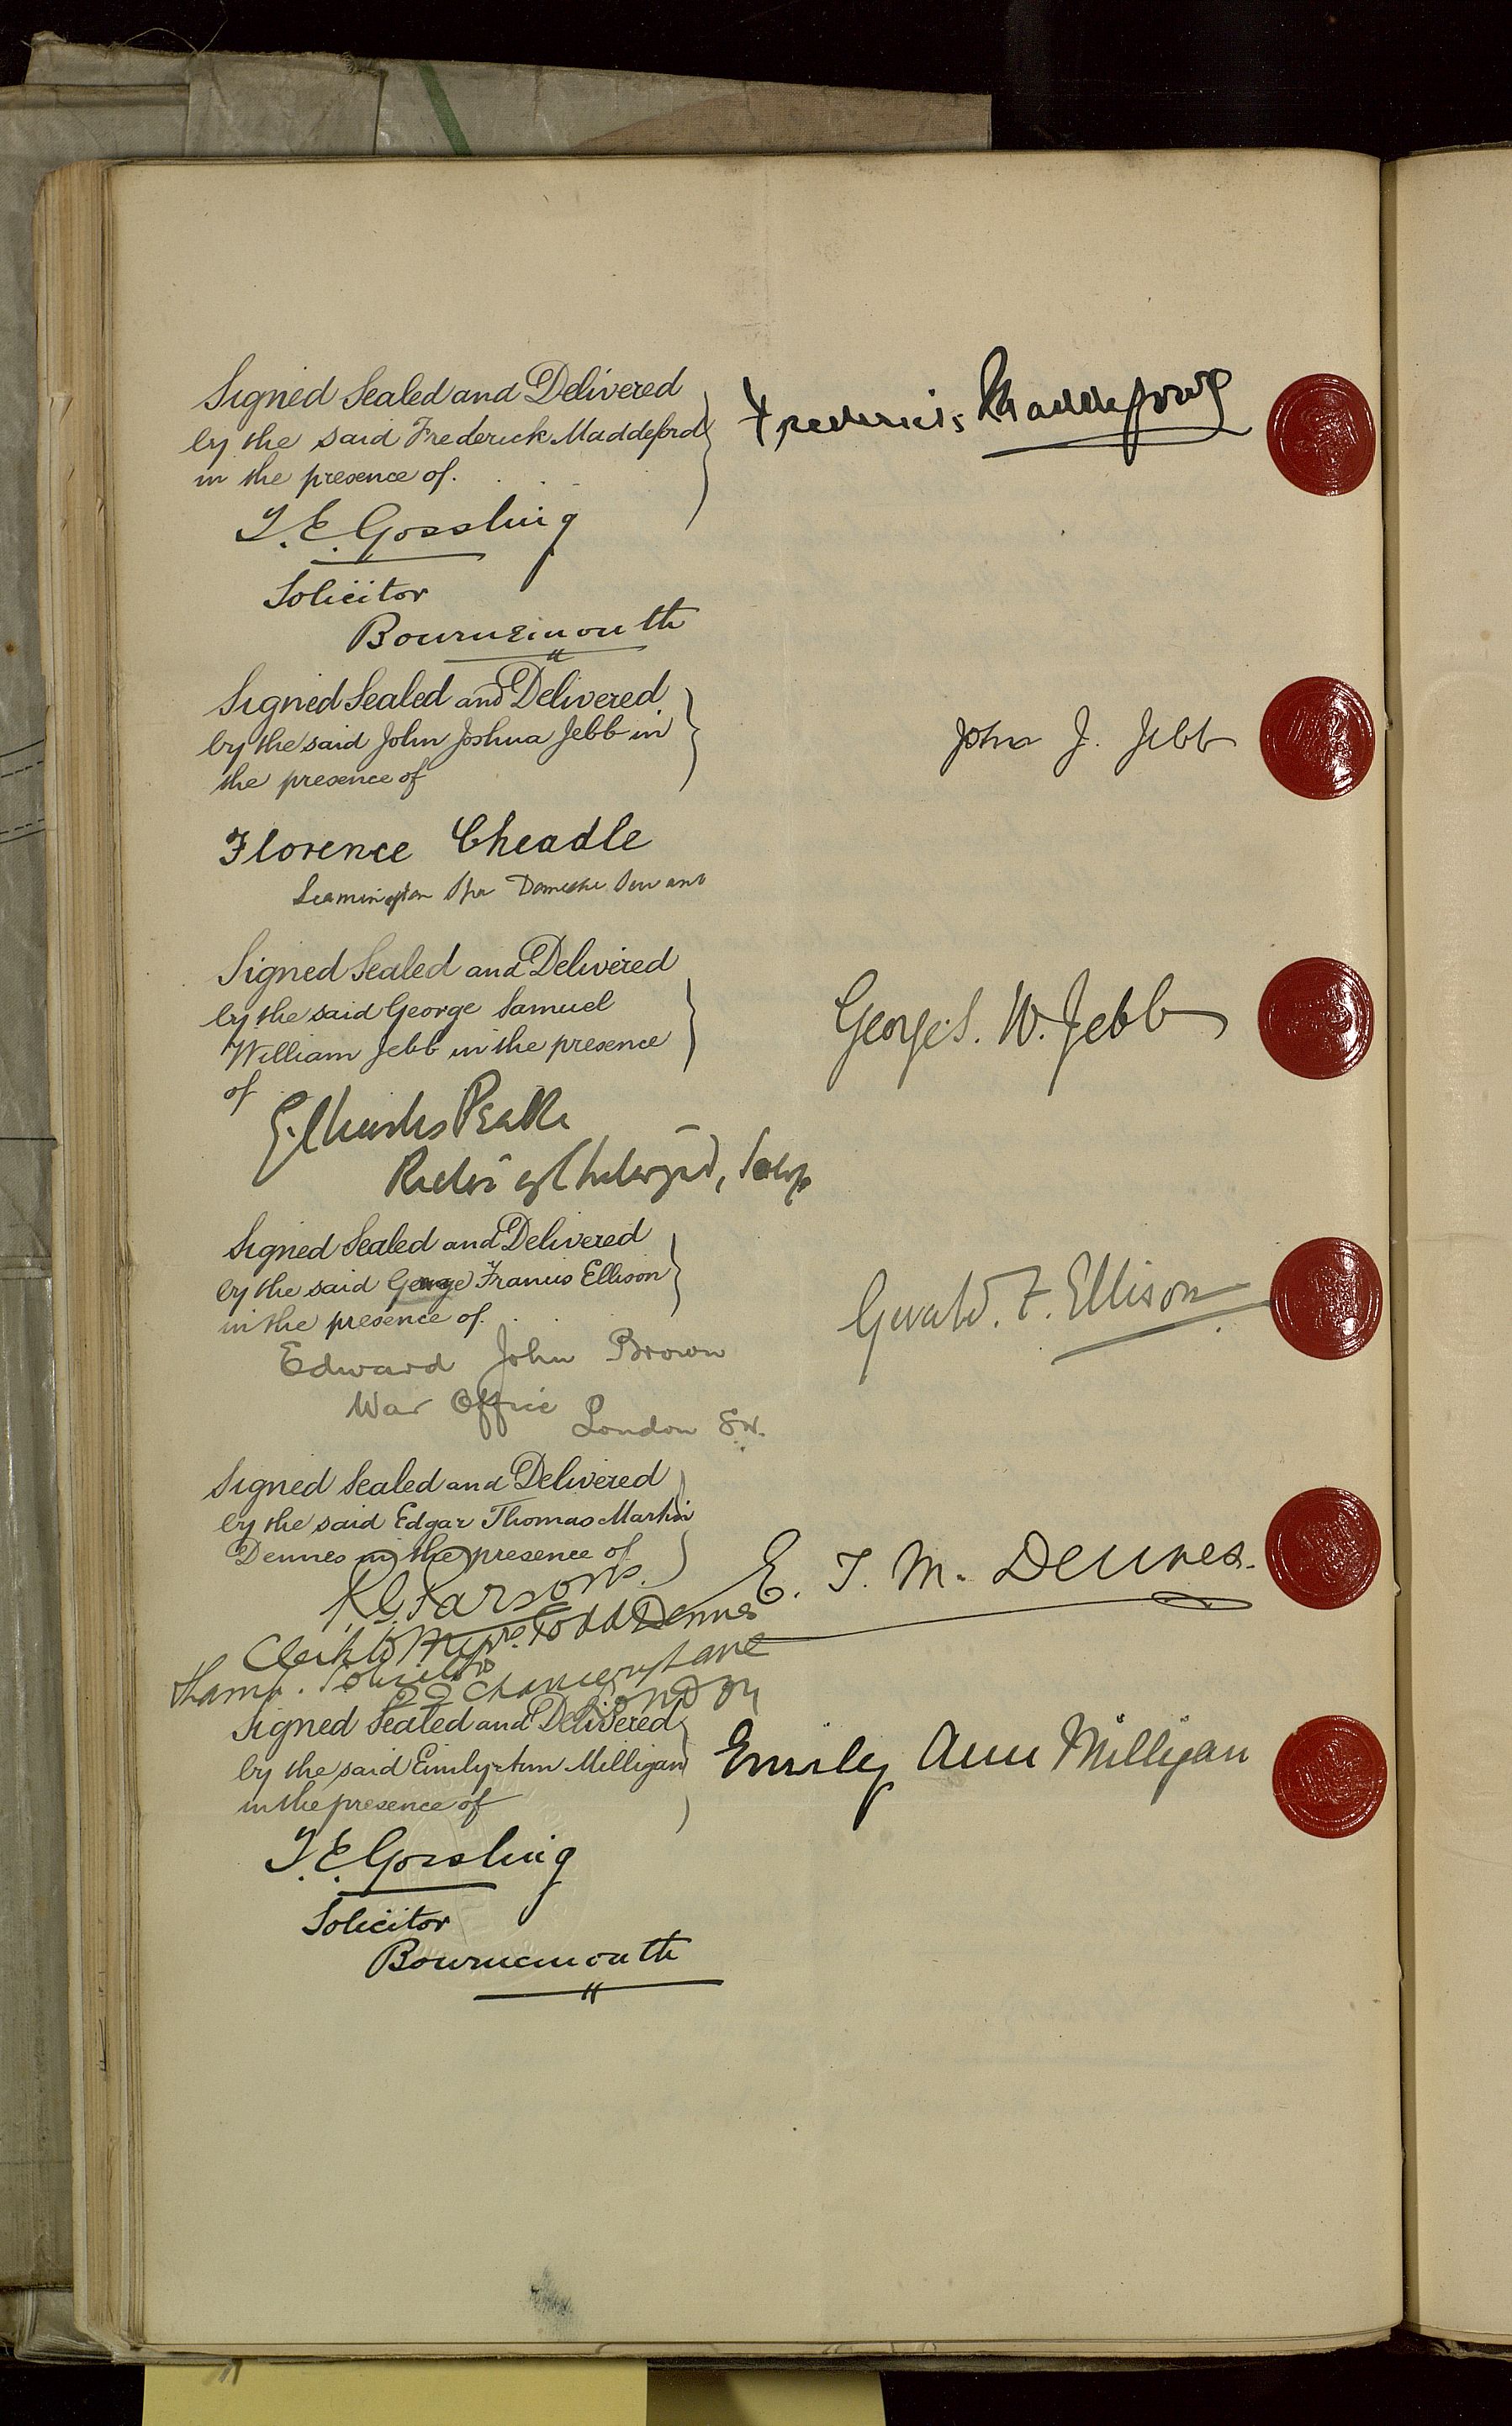 Signed Sealed and Delivered
by the said Frederick Maddeford
in the presence of.
Frederick Maddeford
T. E. Gossling
Solicitor
Bournemouth
Signed Sealed and Delivered
by the said John Joshua Jebb in
the presence of
John J. Jebb
Florence Cheadle
Leamington Spa Domestic Servant
Signed Sealed and Delivered
by the said George Samuel
William Jebb in the presence
of
George S. W. Jebb
Rector of
Signed Sealed and Delivered
by the said George Francis Ellison
in the presence of.
Gerald. F. Ellison
Edward John Brown
War Office
London S.W.
Signed Sealed and Delivered
by the said Edgar Thomas Martin
Dennes in the presence of
E. T. M. Dennes.
Parsons.
Clerk to Messrs. Todd Dennes
Chancery Lane
London
Signed Sealed and Delivered
by the said Emily Ann Milligan
in the presence of
Emily Ann Milligan
T. E. Gossling
Solicitor
Bournemouth